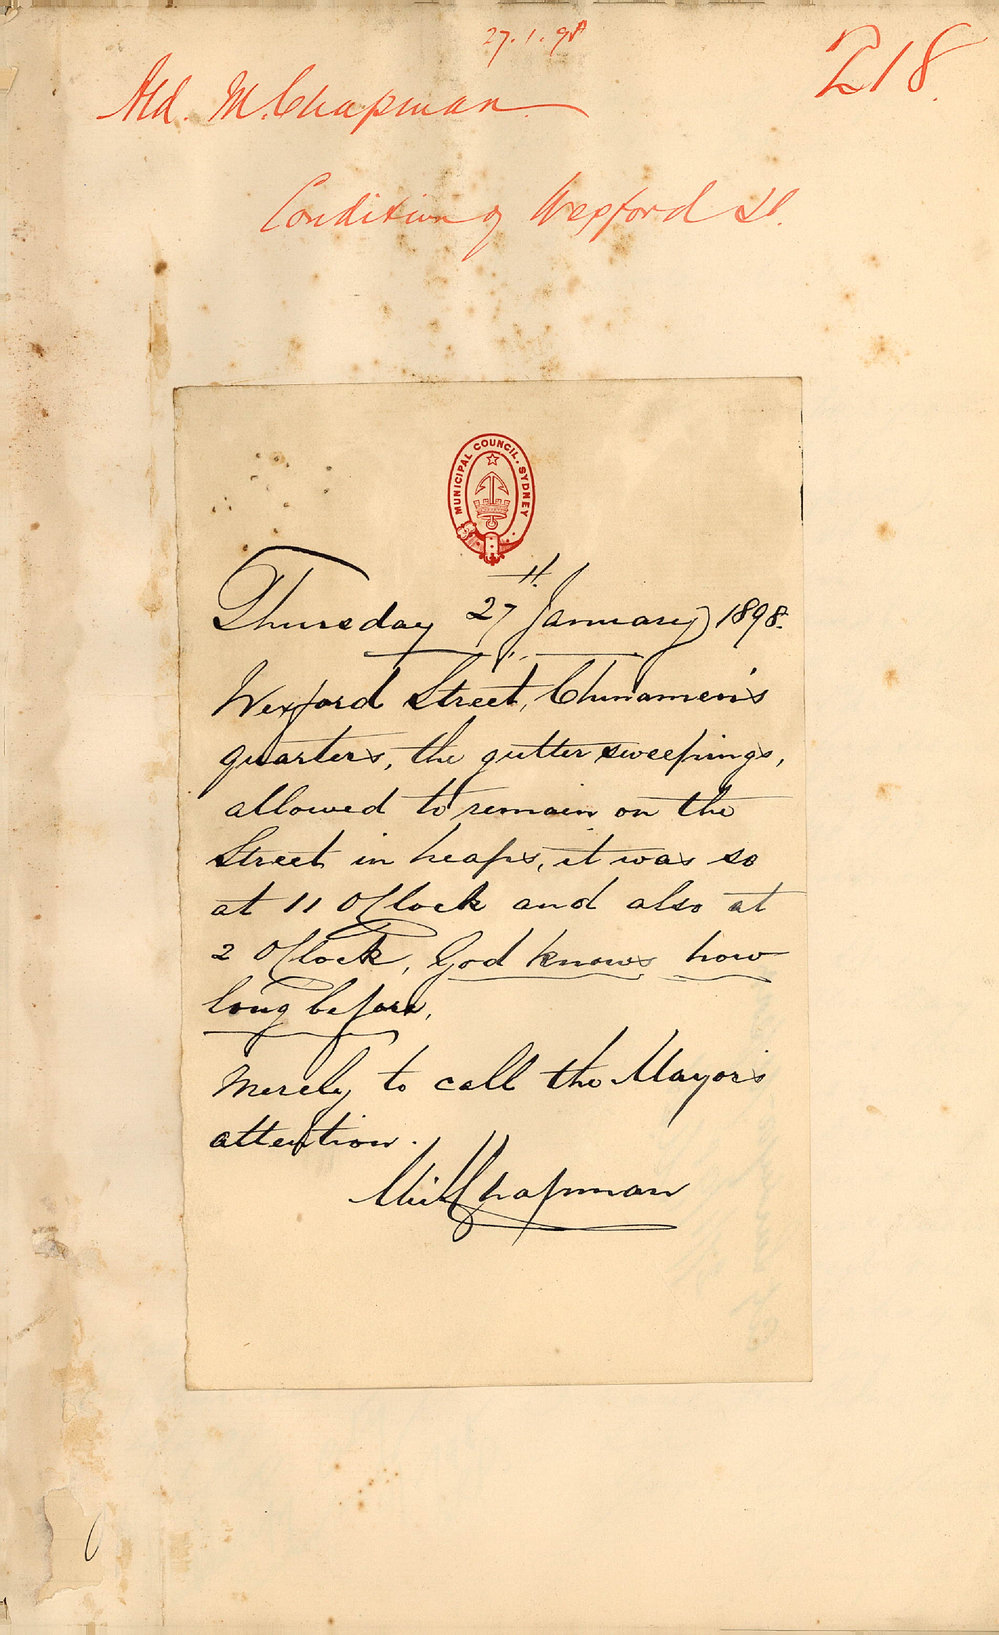 27.1.98
218.
Ald. M. Chapman
Condition of Wexford St.
MUNICIPAL COUNCIL. SYDNEY
Thursday 27th January 1898.
Wexford Street, Chinamen's
quarters, the gutter sweepings,
allowed to remain on the
Street in heaps, it was so
at 11 OClock and also at
2 OClock, God knows how
long before,
Merely to call the Mayor's
attention.
Chapman